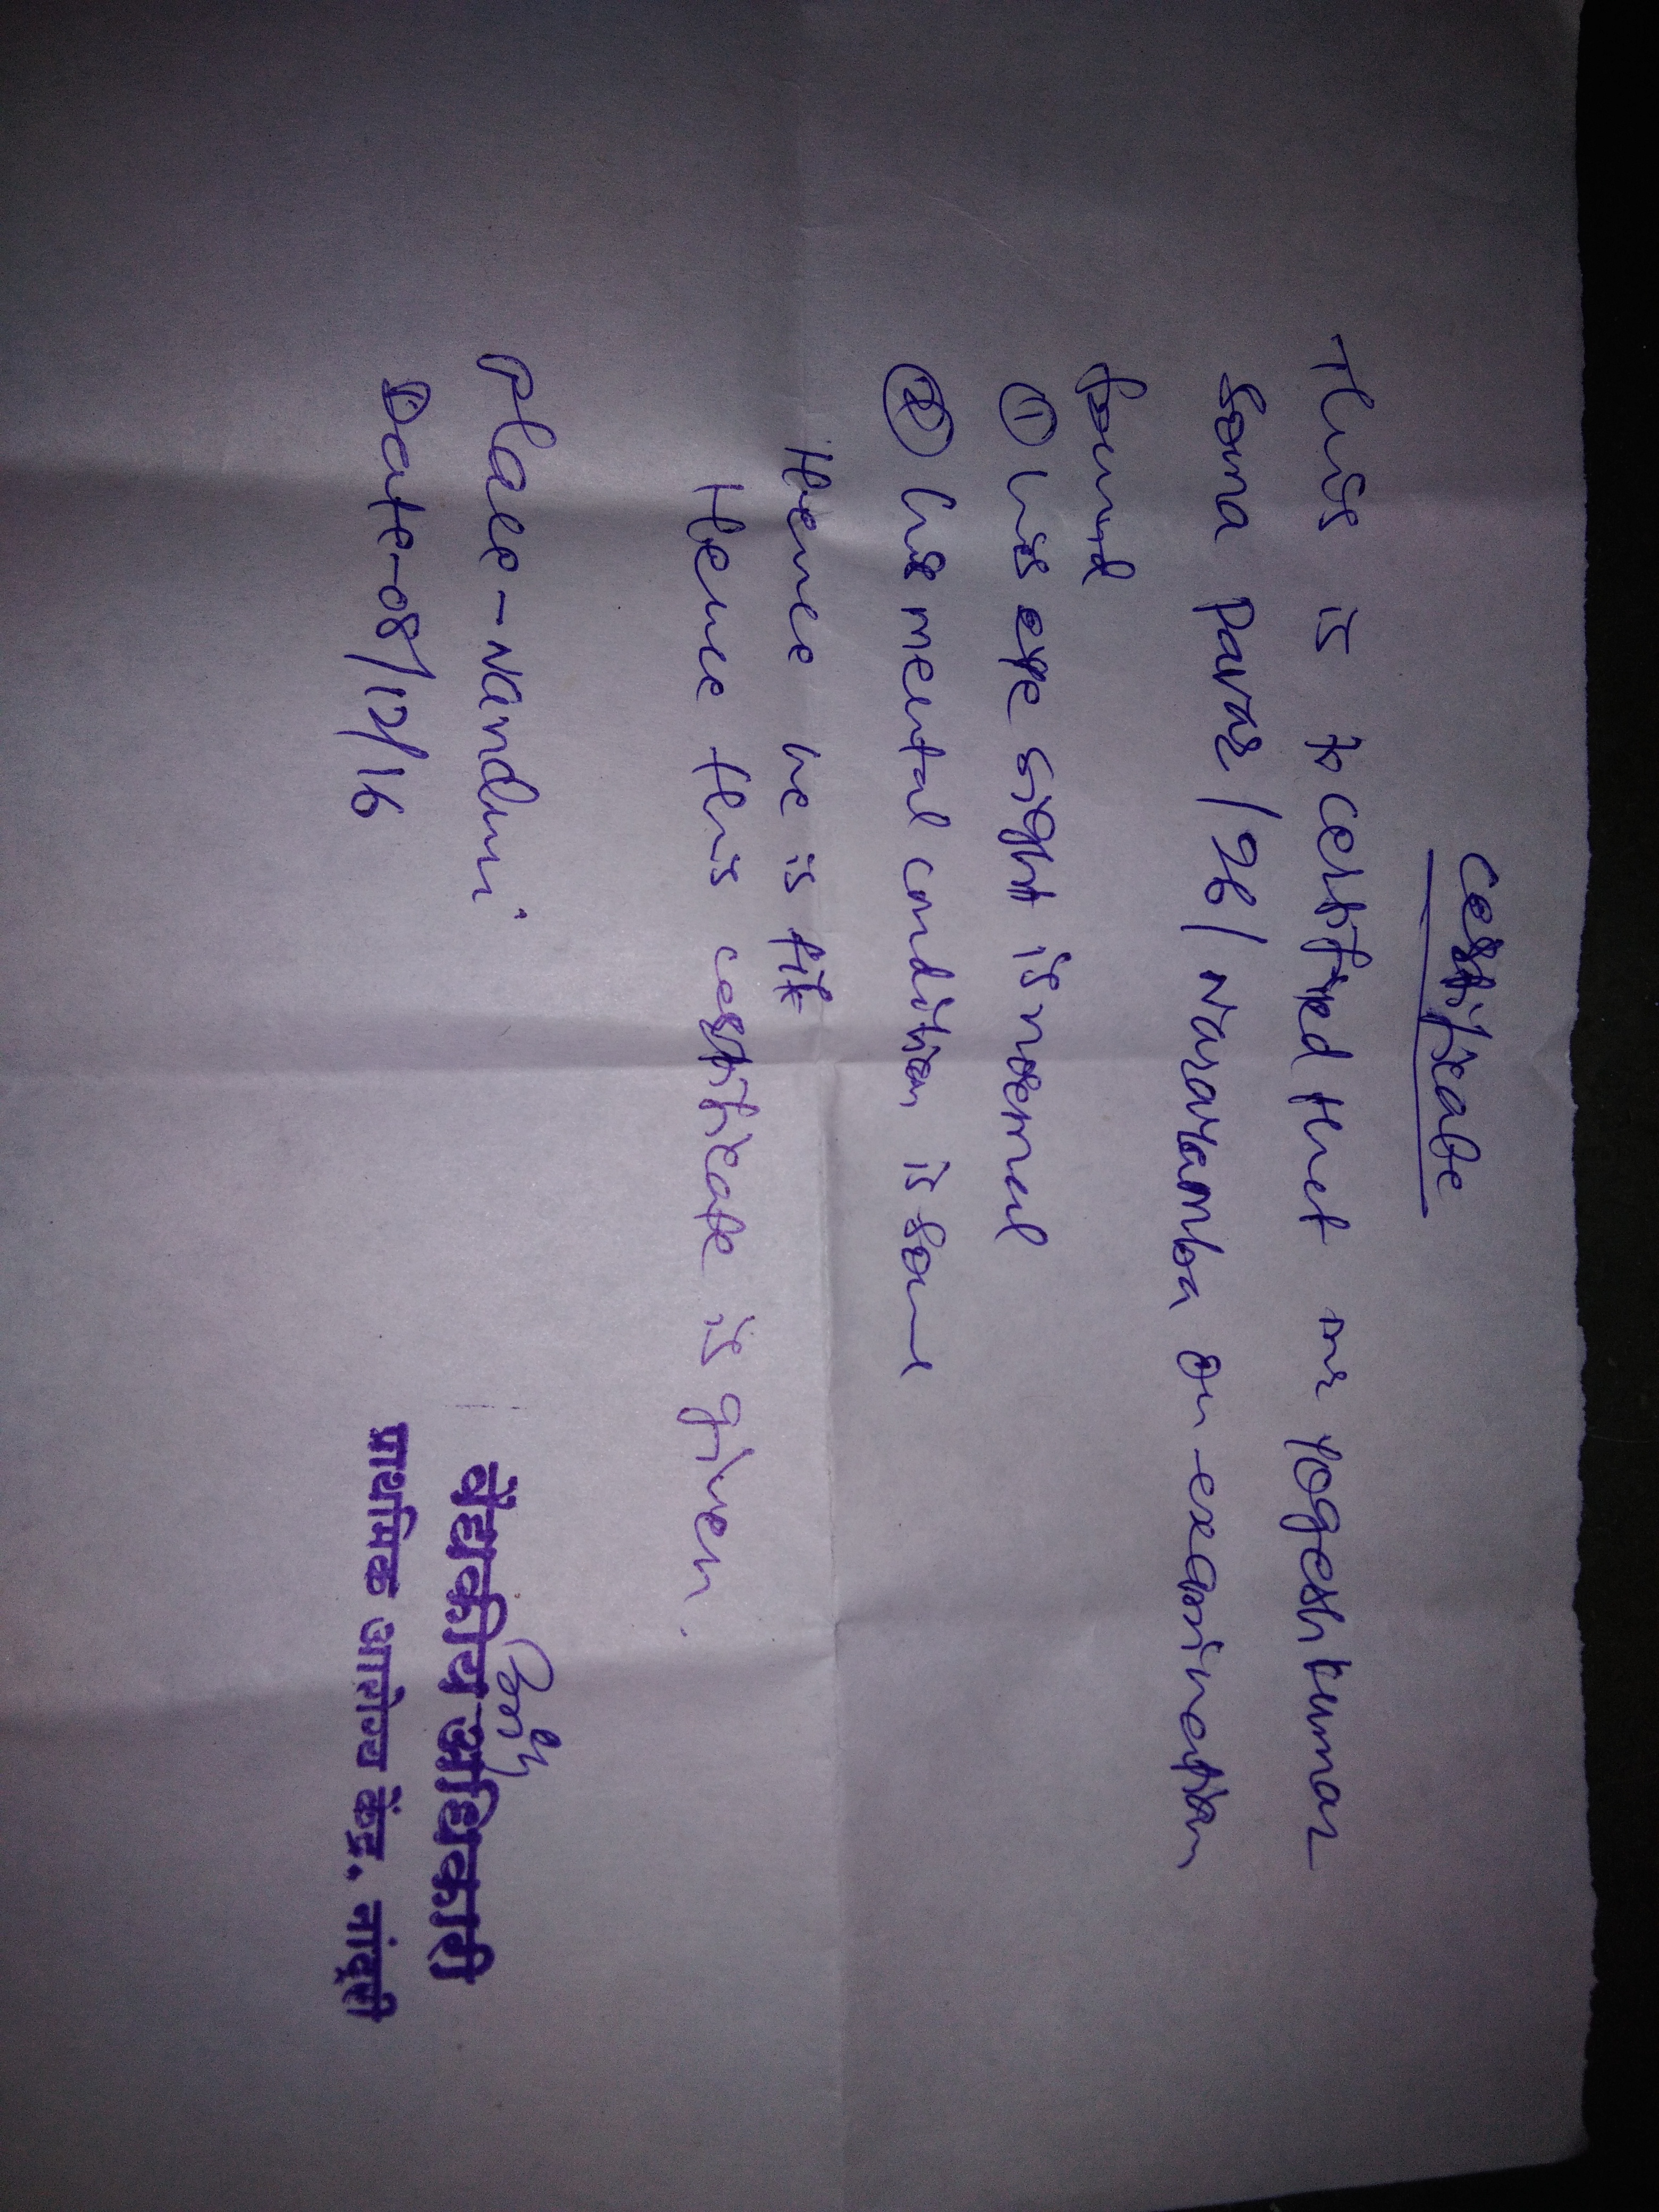 certificate
This is to certified that mr Yogeshkumar
Soma Pavar /26/ Narayamba on examination
found
① his eye sight is normal
② his mental condition is sound
Hence he is fit
Hence this certificate is given.
Place - Nanduri
Date - 08/12/16
वैद्यकीय अधिकारी
प्राथमिक आरोग्य केंद्र, नांदूरी